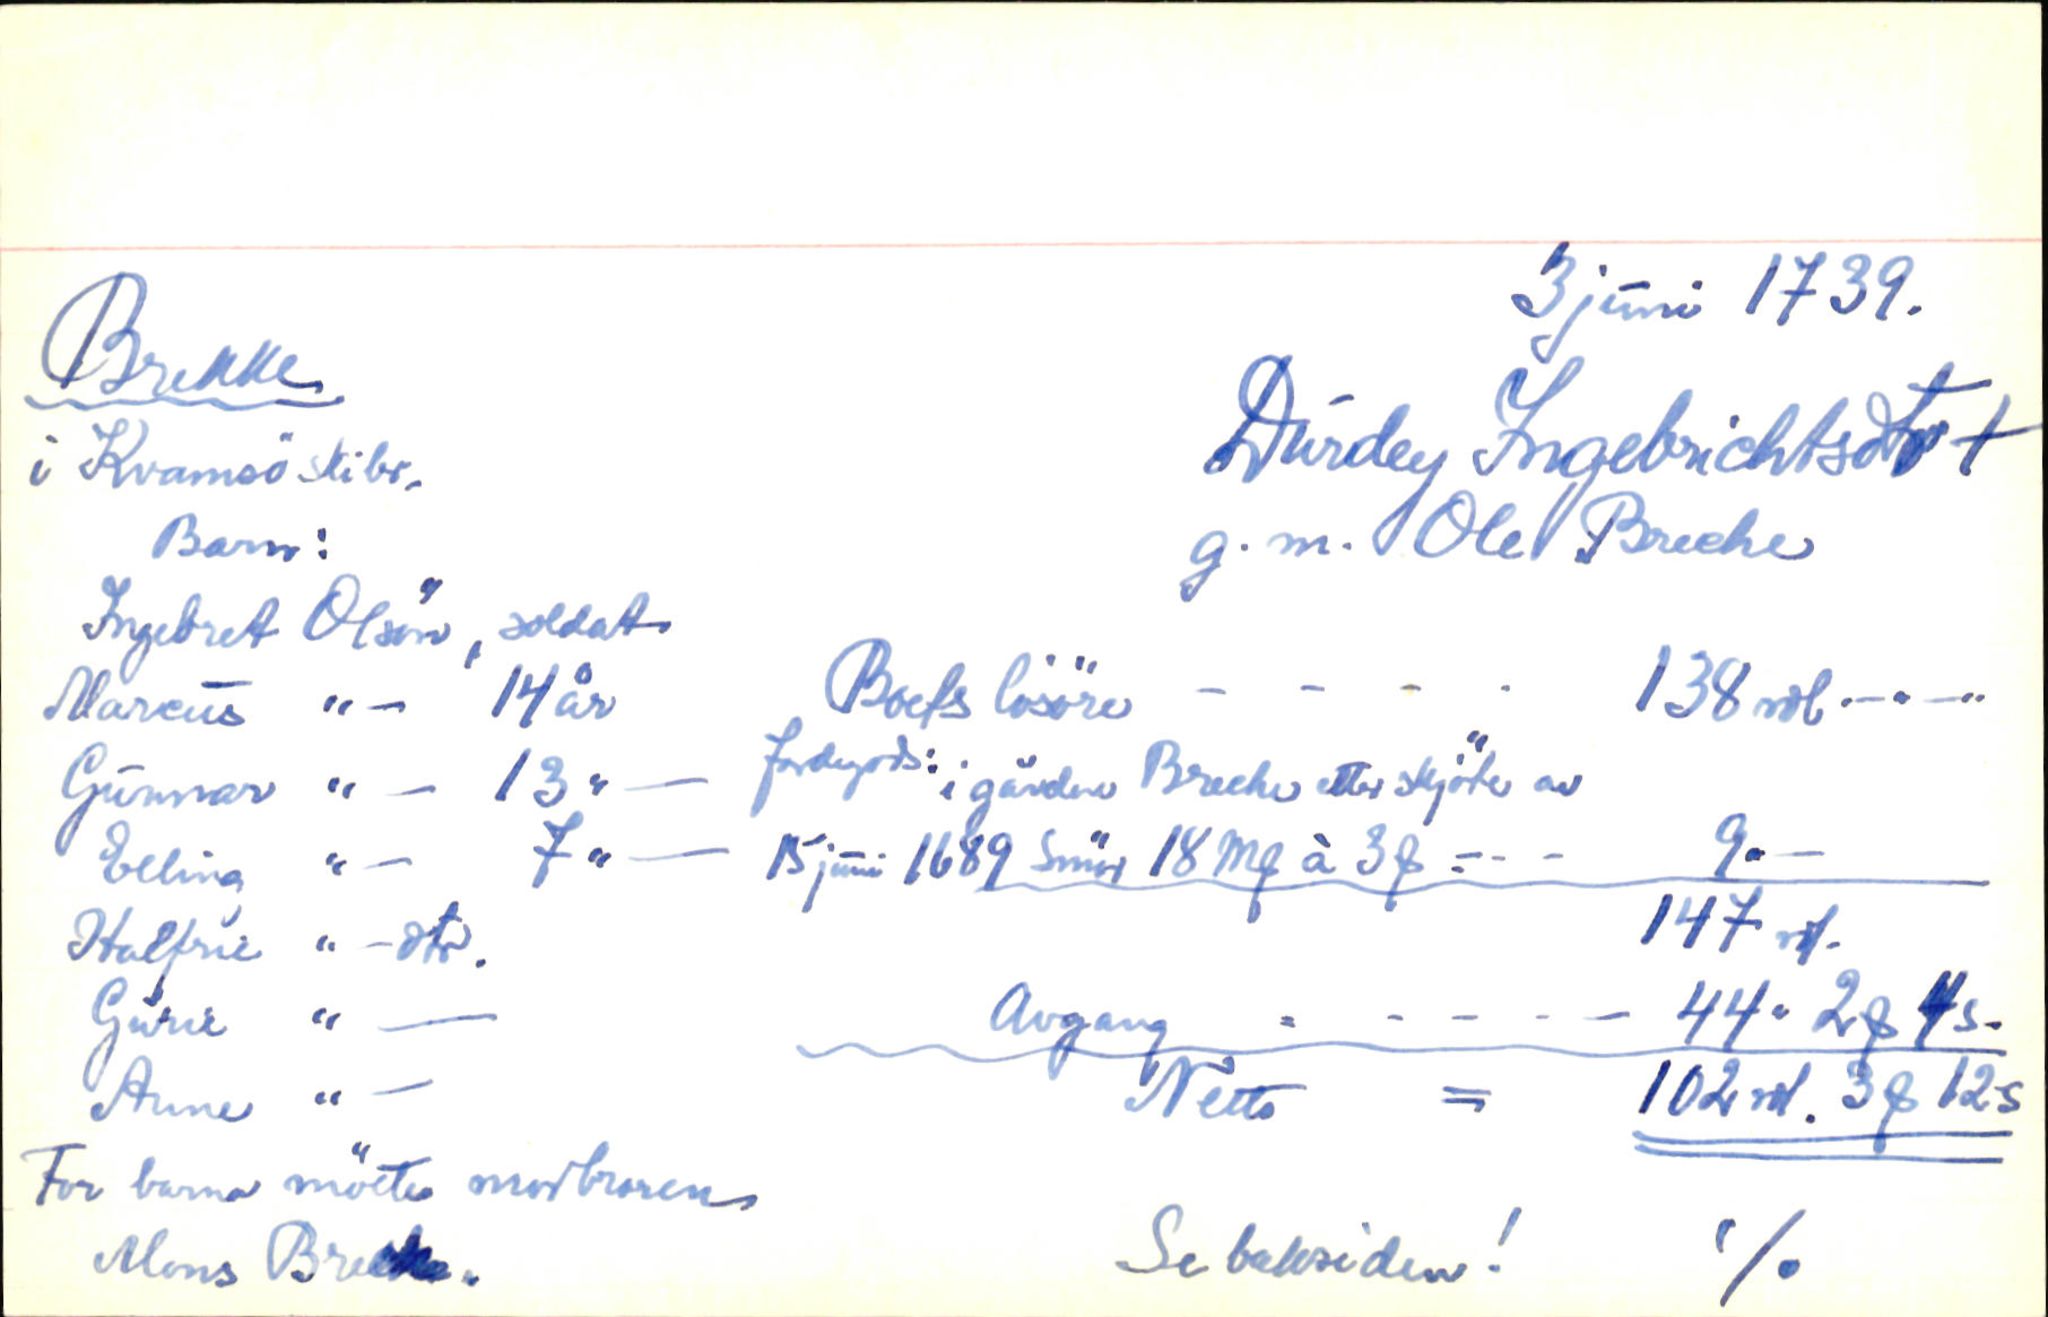 3 juni 1739.
Brekke
i Kvamsö skibr.
Durdey Ingebrichtsdtr †
g. m. Ole Breche
Barn:
Ingebret Olsön, soldat
Marcus " — 14 år
Gunnar " — 13 " —
Elling " — 7 " —
Halfrie " — dtr.
Gurie " —
Anne " —
For barna mötte morbroren
Mons Breche.
Boets lösöre - - - - 138 rdl. — " — "
Jordegods: i gården Breche etter skjöte av
15 juni 1689 Smör 18 Mk à 3 β = - - 9 " —
147 rd.
Avgang - - - - - — 44 " 2 β 4 s.
Netto = 102 rd. 3 β 12 s
Se baksiden! ·/.